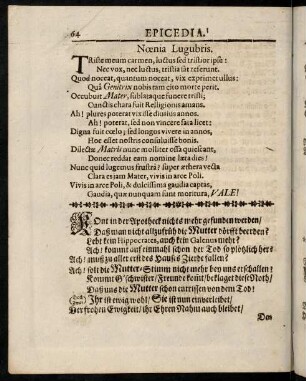 64 EPICEDIA.
Nœnia Lugubris.
TRiste meum carmen, luctus sed tristior ipse:
Nec vox, nec luctus, tristia sat referunt.
Quod noceat, quantum noceat, vix exprimet ullus:
Quâ Genitrix nobis tam cito morte perit.
Occubuit Mater, sublataque funere tristi;
Cunctis chara fuit Relligionis amans.
Ah! plures poterat vixisse diutius annos.
Ah! poterat, sed non vincere fata licet:
Digna fuit cœlo; sed longùs vivere in annos,
Hoc esset nostris consuluisse bonis.
Dilectæ Matris nunc molliter ossa quiescant,
Donec reddat eam nomine læta dies!
Nunc quid lugemus frustrà? super æthera vecta
Clara es jam Mater, vivis in arce Poli.
Vivis in arce Poli, & dulcissima gaudia captas,
Gaudia, quæ nunquam sunt moritura, VALE!
KOnt in der Apotheck nichts mehr gefunden werden/
Daß man nicht allzufrüh die Mutter dörfft beerden?
Lebt kein Hippocrates, auch kein Galenus mehr?
Ach! kommt auf einmahl schon der Tod so plöhlich her?
Ach! muß zu allererst des Hauses Zierde fallen?
Ach! solt die Mutter-Stimm nicht mehr bey uns erschallen?
Kommt G'schwister/ Freunde komt/ beklaget diese Noth/
Daß uns die Mutter schon entrissen von dem Tod!
Ihr ist ewig wohl/ Sie ist nun einverleibet/
Der frohen Ewigkeit/ ihr Ehren Nahm auch bleibet/
Den